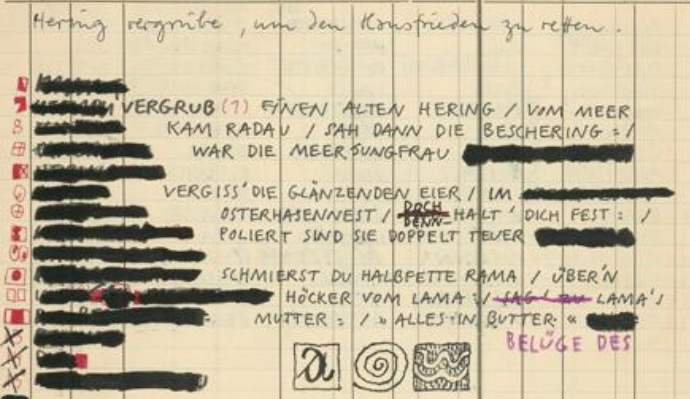 Hering vergrübe, um den Hausfrieden zu retten.
VERGRUB (1) EINEN ALTEN HERING / VOM MEER
KAM RADAU / SAH DANN DIE BESCHERING : /
WAR DIE MEERJUNGFRAU
VERGISS' DIE GLÄNZENDEN EIER / IM
OSTERHASENNEST / DOCH DENN HALT' DICH FEST : /
POLIERT SIND SIE DOPPELT TEUER
SCHMIERST DU HALBFETTE RAMA / ÜBER'N
HÖCKER VOM LAMA : / SAG' ZU LAMA'S
MUTTER : / » ALLES IN BUTTER «
BELÜGE DES
a